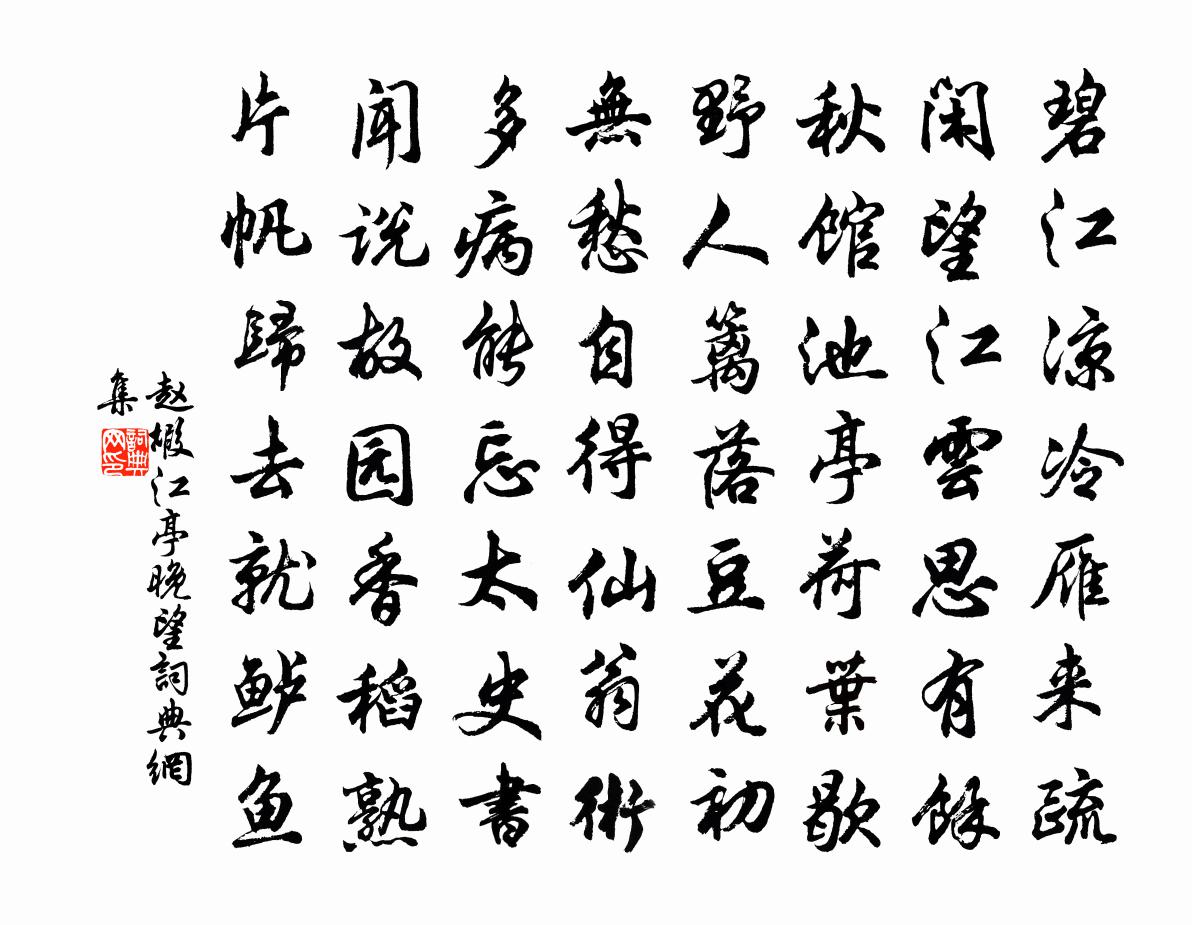 碧江凉冷雁来疏
闲望江雲思有餘
秋馆池亭荷葉歇
野人籬落豆花初
無愁自得仙翁術
多病能忘太史書
闻说故园香稻熟
片帆歸去就鲈鱼
赵嘏江亭晚望詞典網
集
詞典
网印